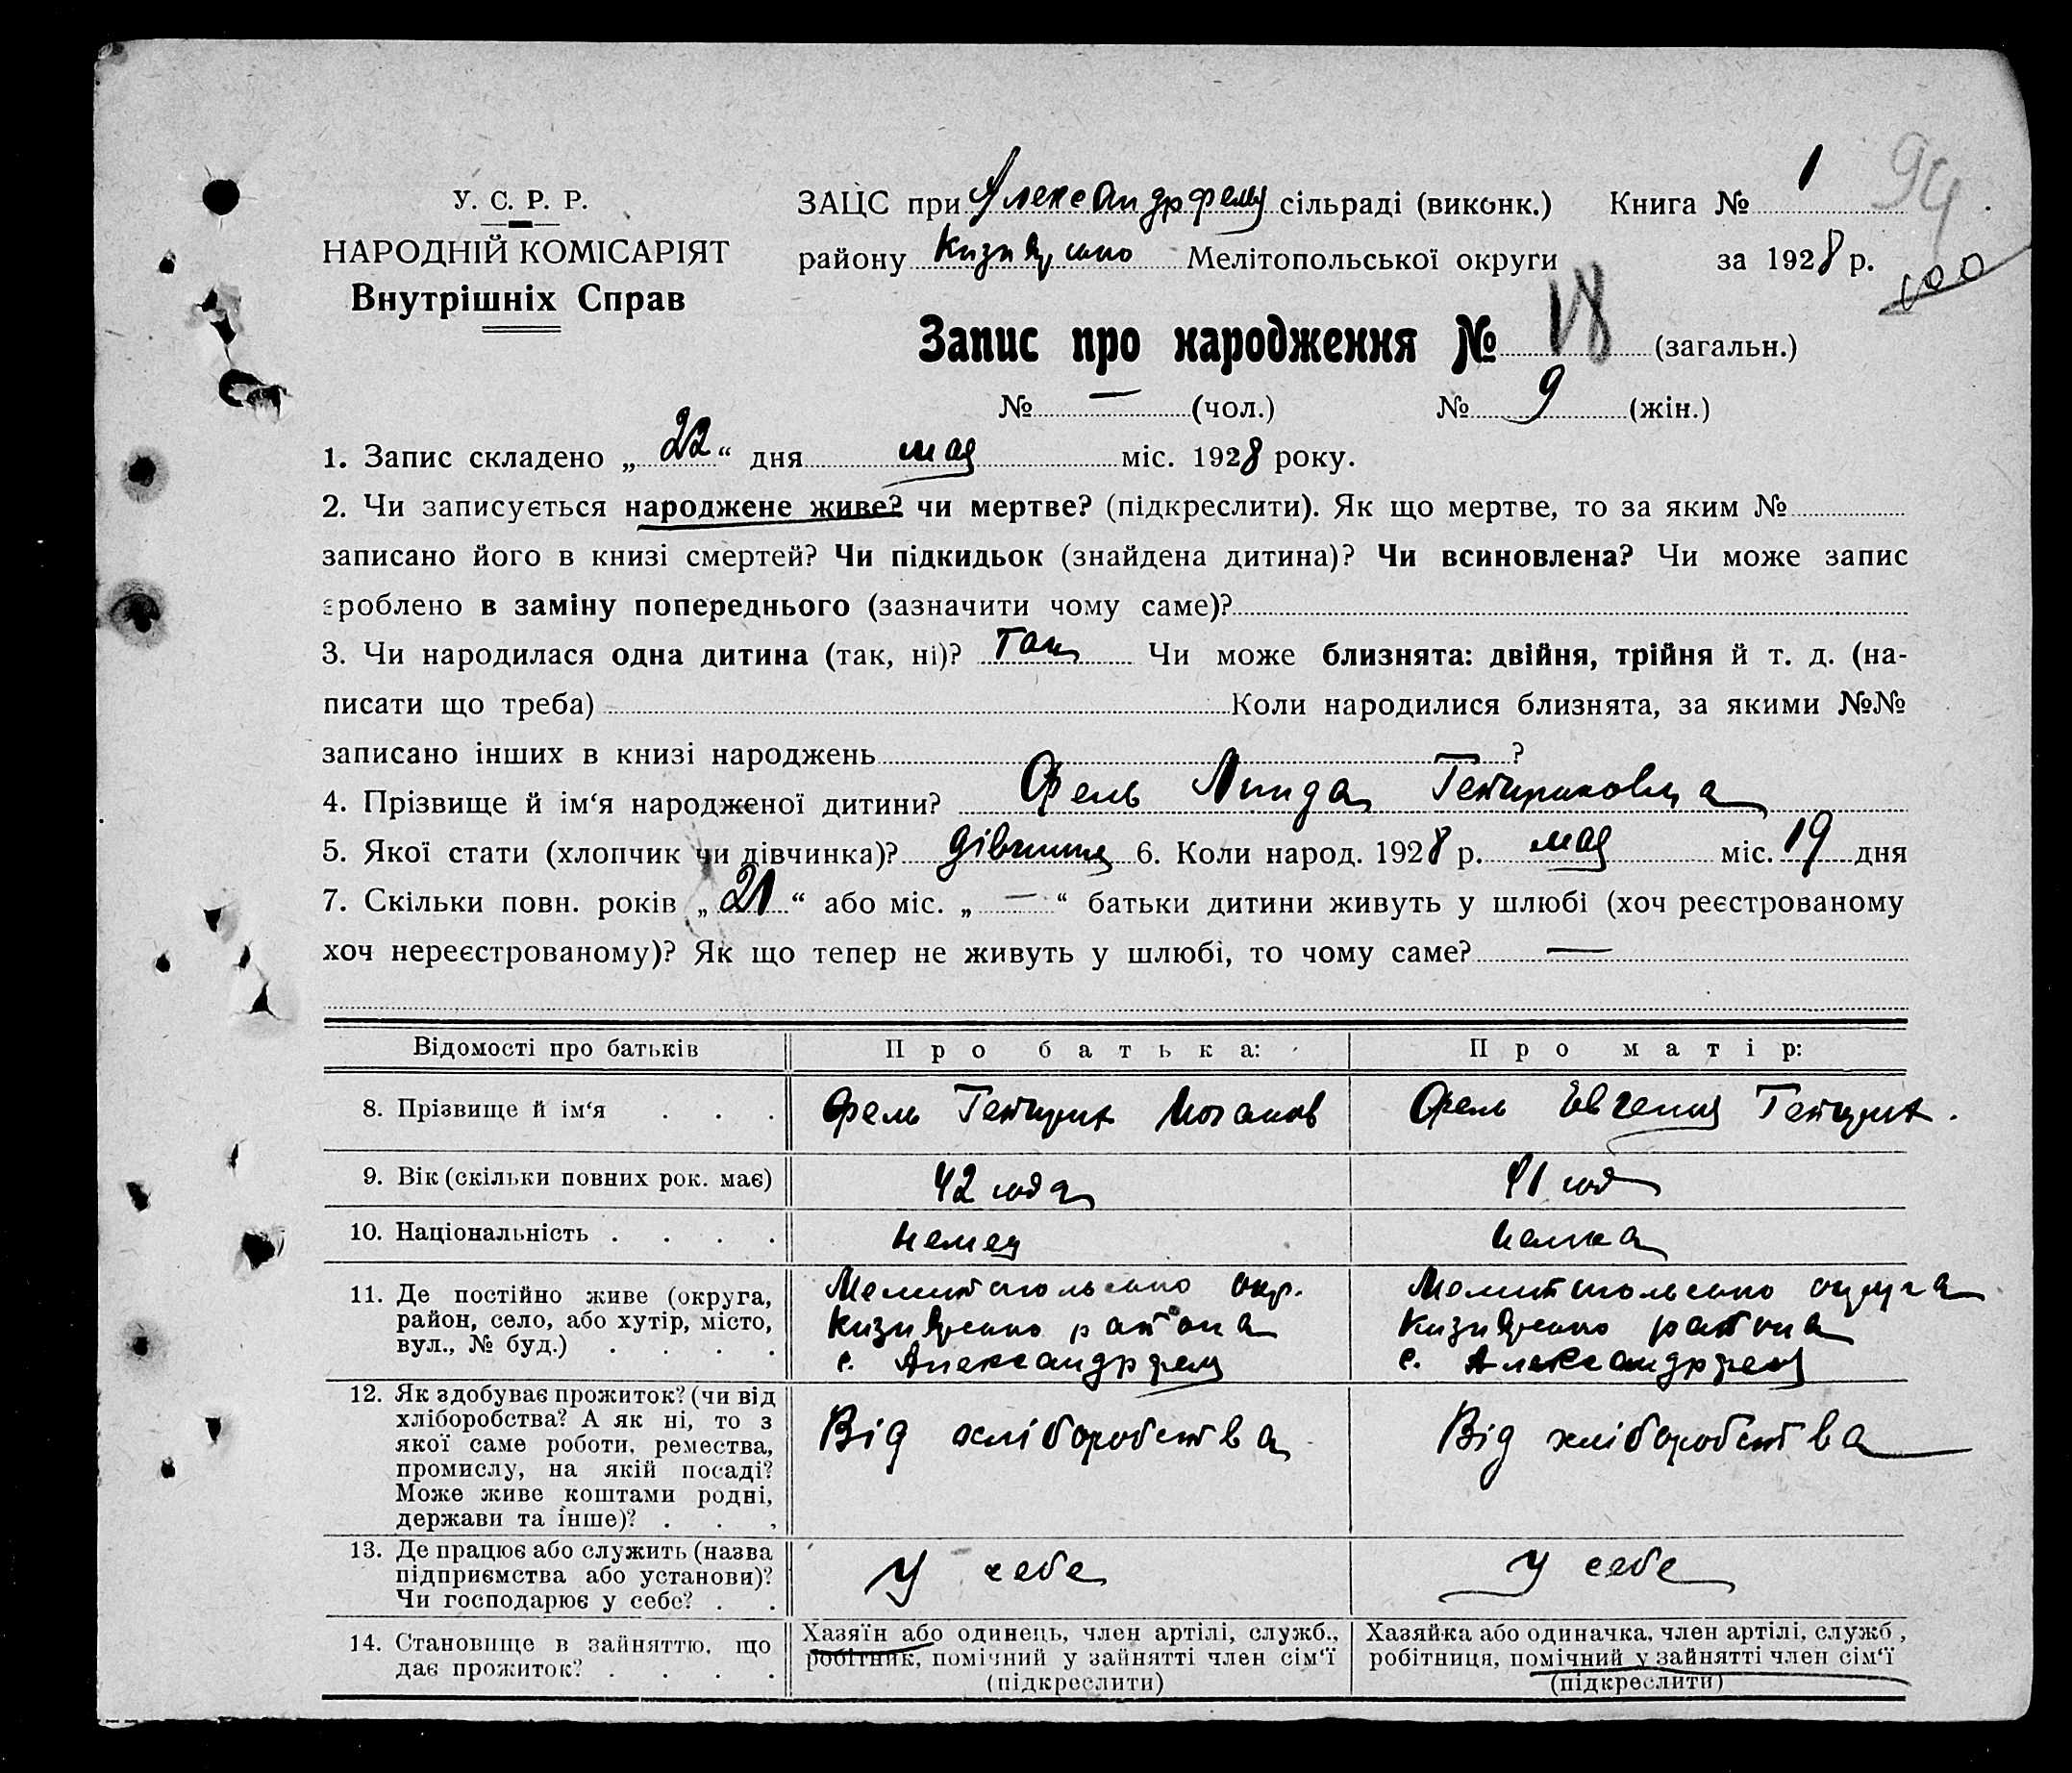 94
У. С. Р. Р.
НАРОДНІЙ КОМІСАРІЯТ
Внутрішніх Справ
ЗАЦС при Александрфельд сільраді (виконк.) Книга № 1
району Мелітопольської округи за 1928 р.
100
Запис про народження № 18 (загальн.)
№ — (чол.) № 9 (жін.)
1. Запис складено „ 22 “ дня мая міс. 1928 року.
2. Чи записується народжене живе? чи мертве? (підкреслити). Як що мертве, то за яким №
записано його в книзі смертей? Чи підкидьок (знайдена дитина)? Чи всиновлена? Чи може запис
зроблено в заміну попереднього (зазначити чому саме)?
3. Чи народилася одна дитина (так, ні)? Так Чи може близнята: двійня, трійня й т. д. (на-
писати що треба) Коли народилися близнята, за якими №№
записано інших в книзі народжень ?
4. Прізвище й ім‘я народженої дитини? Линда
5. Якої стати (хлопчик чи дівчинка)? дівчина 6. Коли народ. 1928 р. мая міс. 19 дня
7. Скільки повн. років „ 21 “ або міс. „ — “ батьки дитини живуть у шлюбі (хоч реєстрованому
хоч нереєстрованому)? Як що тепер не живуть у шлюбі, то чому саме? —
Відомості про батьків Про батька: Про матір:
8. Прізвище й ім‘я . . . Генрих Иоганов Евгения Генрих.
9. Вік (скільки повних рок. має) 42 года 41 год
10. Національність . . . . немец немка
11. Де постійно живе (округа, район, село, або хутір, місто, вул., № буд.) . . . .
Мелитопольско окр.
района
с. Александрфельд
Мелитопольско округа
района
с. Александрфельд
12. Як здобуває прожиток? (чи від
хліборобства? А як ні, то з
якої саме роботи, ремества,
промислу, на якій посаді?
Може живе коштами родні,
держави та інше)? . . .
Від хліборобства
Від хліборобства
13. Де працює або служить (назва
підприємства або установи)?
Чи господарює у себе? . .
У себе
У себе
14. Становище в зайняттю, що
дає прожиток? . . . .
Хазяїн або одинець, член артілі, служб.,
робітник, помічний у зайнятті член сім‘ї
(підкреслити)
Хазяйка або одиначка, член артілі, служб,
робітниця, помічний у зайнятті член сім‘ї
(підкреслити)